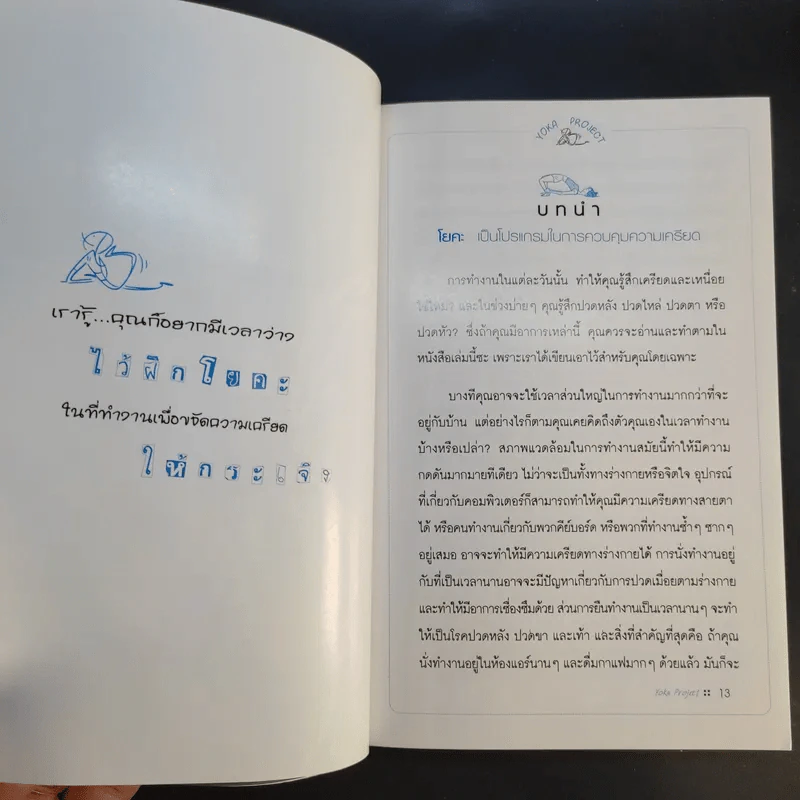 เรารู้...คุณก็อยากมีเวลาว่าง
ไว้ฝึกโยคะ
ในที่ทำงานเพื่อขจัดความเครียด
ให้กระเจิง
YOKA PROJECT
บทนำ
โยคะ เป็นโปรแกรมในการควบคุมความเครียด
การทำงานในแต่ละวันนั้น ทำให้คุณรู้สึกเครียดและเหนื่อย
ใช่ไหม? และในช่วงบ่ายๆ คุณรู้สึกปวดหลัง ปวดไหล่ ปวดตา หรือ
ปวดหัว? ซึ่งถ้าคุณมีอาการเหล่านี้ คุณควรจะอ่านและทำตามใน
หนังสือเล่มนี้ซะ เพราะเราได้เขียนเอาไว้สำหรับคุณโดยเฉพาะ
บางทีคุณอาจจะใช้เวลาส่วนใหญ่ในการทำงานมากกว่าที่จะ
อยู่กับบ้าน แต่อย่างไรก็ตามคุณเคยคิดถึงตัวคุณเองในเวลาทำงาน
บ้างหรือเปล่า? สภาพแวดล้อมในการทำงานสมัยนี้ทำให้มีความ
กดดันมากมายทีเดียว ไม่ว่าจะเป็นทั้งทางร่างกายหรือจิตใจ อุปกรณ์
ที่เกี่ยวกับคอมพิวเตอร์ก็สามารถทำให้คุณมีความเครียดทางสายตา
ได้ หรือคนทำงานเกี่ยวกับพวกคีย์บอร์ด หรือพวกที่ทำงานซ้ำๆ ซากๆ
อยู่เสมอ อาจจะทำให้มีความเครียดทางร่างกายได้ การนั่งทำงานอยู่
กับที่เป็นเวลานานอาจจะมีปัญหาเกี่ยวกับการปวดเมื่อยตามร่างกาย
และทำให้มีอาการเซื่องซึมด้วย ส่วนการยืนทำงานเป็นเวลานานๆ จะทำ
ให้เป็นโรคปวดหลัง ปวดขา และเท้า และสิ่งที่สำคัญที่สุดคือ ถ้าคุณ
นั่งทำงานอยู่ในห้องแอร์นานๆ และดื่มกาแฟมากๆ ด้วยแล้ว มันก็จะ
Yoka Project :: 13